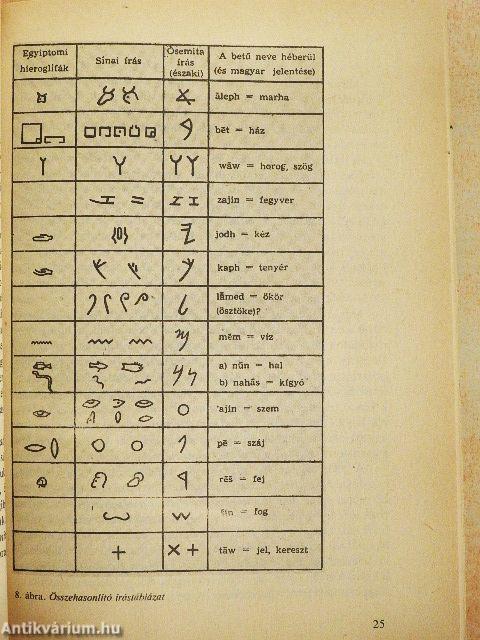 Egyiptomi hieroglifák
Sinai írás
Ősemita írás (északi)
A betű neve héberül (és magyar jelentése)
āleph = marha
bēt = ház
wāw = horog, szög
zajin = fegyver
jodh = kéz
kaph = tenyér
lāmed = ökör (ösztöke)?
mēm = víz
a) nūn = hal
b) nahāš = kígyó
'ajin = szem
pē = száj
rēš = fej
šin = fog
tāw = jel, kereszt
8. ábra. Összehasonlító írástáblázat
25
Antikvárium.hu